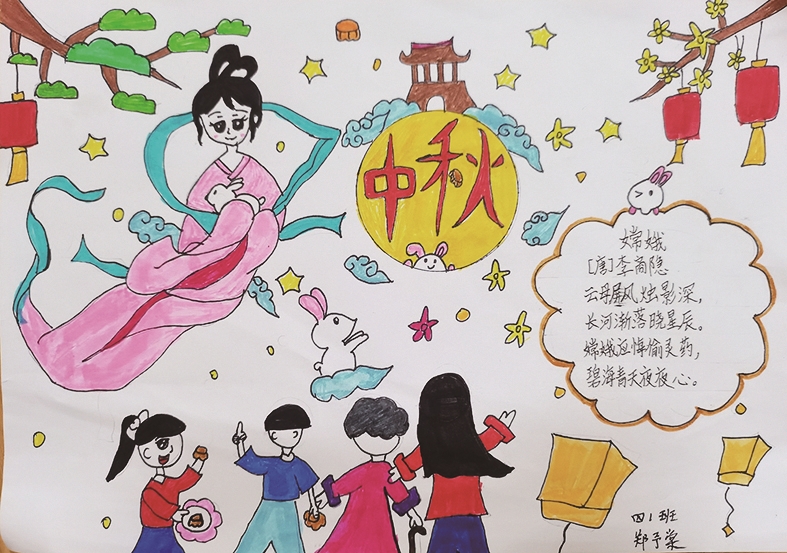 中秋
嫦娥
[唐]李商隐
云母屏风烛影深，
长河渐落晓星辰。
嫦娥应悔偷灵药，
碧海青天夜夜心。
四1班
郑予棠